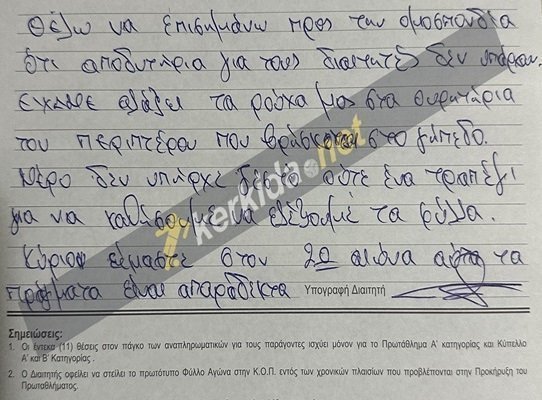 Θέλω να επισημάνω προς την ομοσπονδία
ότι αποδυτήρια για τους διαιτητές δεν υπάρχουν.
εχουμε αλάξει τα ρούχα μας στα ουρητάρια
του περιπτέρου που βρίσκεται στο γήπεδο.
Νερό δεν υπήρχε ζεστό ούτε ένα τραπέζι
για να καθήσουμε να ελέξουμε τα φύλλα.
Κύριοι είμαστε στον 20 αιώνα αυτα τα
πράγματα είναι απαράδεκτα Υπογραφή Διαιτητή
1 kerkida.net
Σημειώσεις:
1. Οι έντεκα (11) θέσεις στον πάγκο των αναπληρωματικών για τους παράγοντες ισχύει μόνον για το Πρωτάθλημα Α' κατηγορίας και Κύπελλο
Α' και Β' Κατηγορίας .
2. Ο Διαιτητής οφείλει να στείλει το πρωτότυπο Φύλλο Αγώνα στην Κ.Ο.Π. εντός των χρονικών πλαισίων που προβλέπονται στην Προκήρυξη του
Πρωταθλήματος.